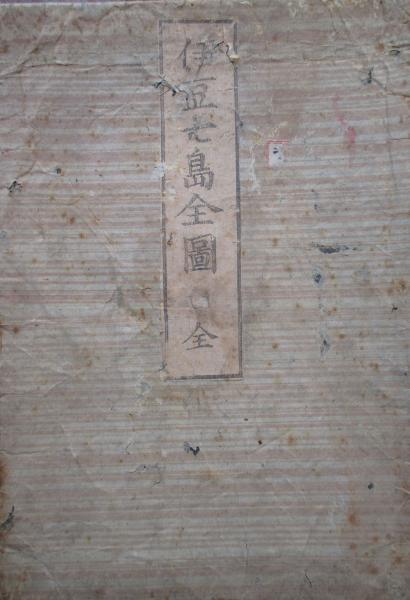 伊豆七島全圖 全